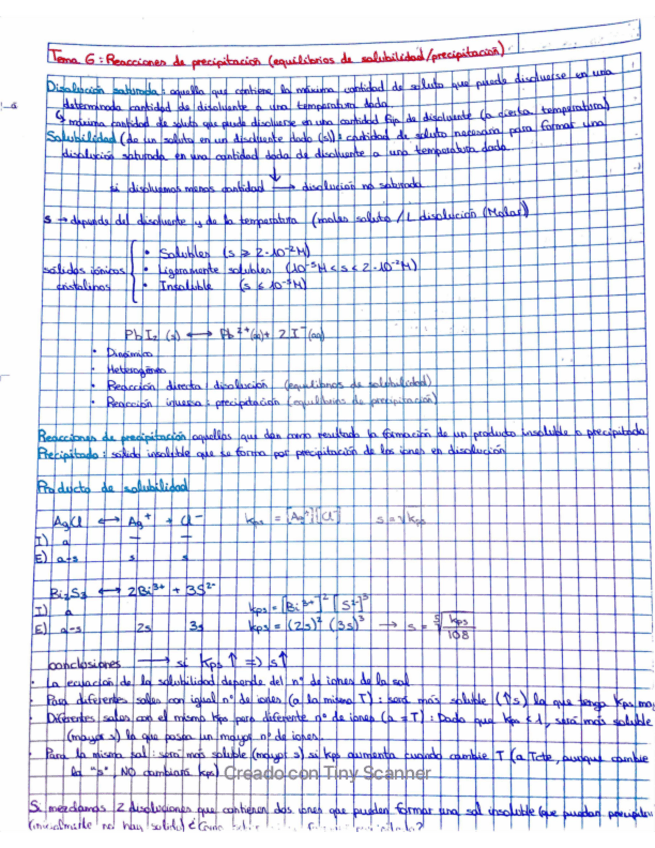 Tema 6: Reacciones de precipitación (equilibrios de solubilidad/precipitación)
Disolución saturada: aquella que contiene la máxima cantidad de soluto que puede disolverse en una
determinada cantidad de disolvente a una temperatura dada.
↳ máxima cantidad de soluto que puede disolverse en una cantidad fija de disolvente (a cierta temperatura)
Solubilidad (de un soluto en un disolvente dado (s)): cantidad de soluto necesaria para formar una
disolución saturada en una cantidad dada de disolvente a una temperatura dada.
↓
si disolvemos menos cantidad → disolución no saturada
s → depende del disolvente y de la temperatura (moles soluto / L disolución (Molar))
• Solubles (s ≥ 2·10⁻²M)
sólidos iónicos • Ligeramente solubles (10⁻⁵M < s < 2·10⁻²M)
cristalinos • Insoluble (s ≤ 10⁻⁵M)
PbI₂ (s) ⟷ Pb²⁺(aq) + 2I⁻(aq)
• Dinámico
• Heterogéneo
• Reacción directa: disolución (equilibrios de solubilidad)
• Reacción inversa: precipitación (equilibrios de precipitación)
Reacciones de precipitación aquellas que dan como resultado la formación de un producto insoluble o precipitado
Precipitado: sólido insoluble que se forma por precipitación de los iones en disolución
Producto de solubilidad
AgCl ⟷ Ag⁺ + Cl⁻ kps = [Ag⁺][Cl⁻] s = √kps
I) a — —
E) a-s s s
Bi₂S₃ ⟷ 2Bi³⁺ + 3S²⁻
I) a kps = [Bi³⁺]² [S²⁻]³
E) a-s 2s 3s kps = (2s)² (3s)³ → s = ⁵√kps/108
conclusiones → si Kps ↑ => s↑
• La ecuación de la solubilidad depende del nº de iones de la sal
• Para diferentes sales con igual nº de iones (a la misma T): será más soluble (↑s) la que tenga Kps
• Diferentes sales con el mismo Kps pero diferente nº de iones (a = T): Dado que Kps < 1, será más soluble
(mayor s) la que posea un mayor nº de iones.
• Para la misma sal: será más soluble (mayor s) si kps aumenta cuando cambie T (a T cte, aunque cambie
la "s", NO cambiará kps) Creado con Tiny Scanner
Si mezclamos 2 disoluciones que contienen dos iones que pueden formar una sal insoluble (que puedan
(inicialmente no hay sólido) ¿Cómo